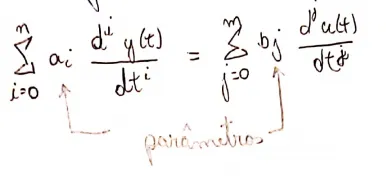 $\sum_{i=0}^{n} a_i \frac{d^i y(t)}{dt^i} = \sum_{j=0}^{m} b_j \frac{d^j u(t)}{dt^j}$
parâmetros